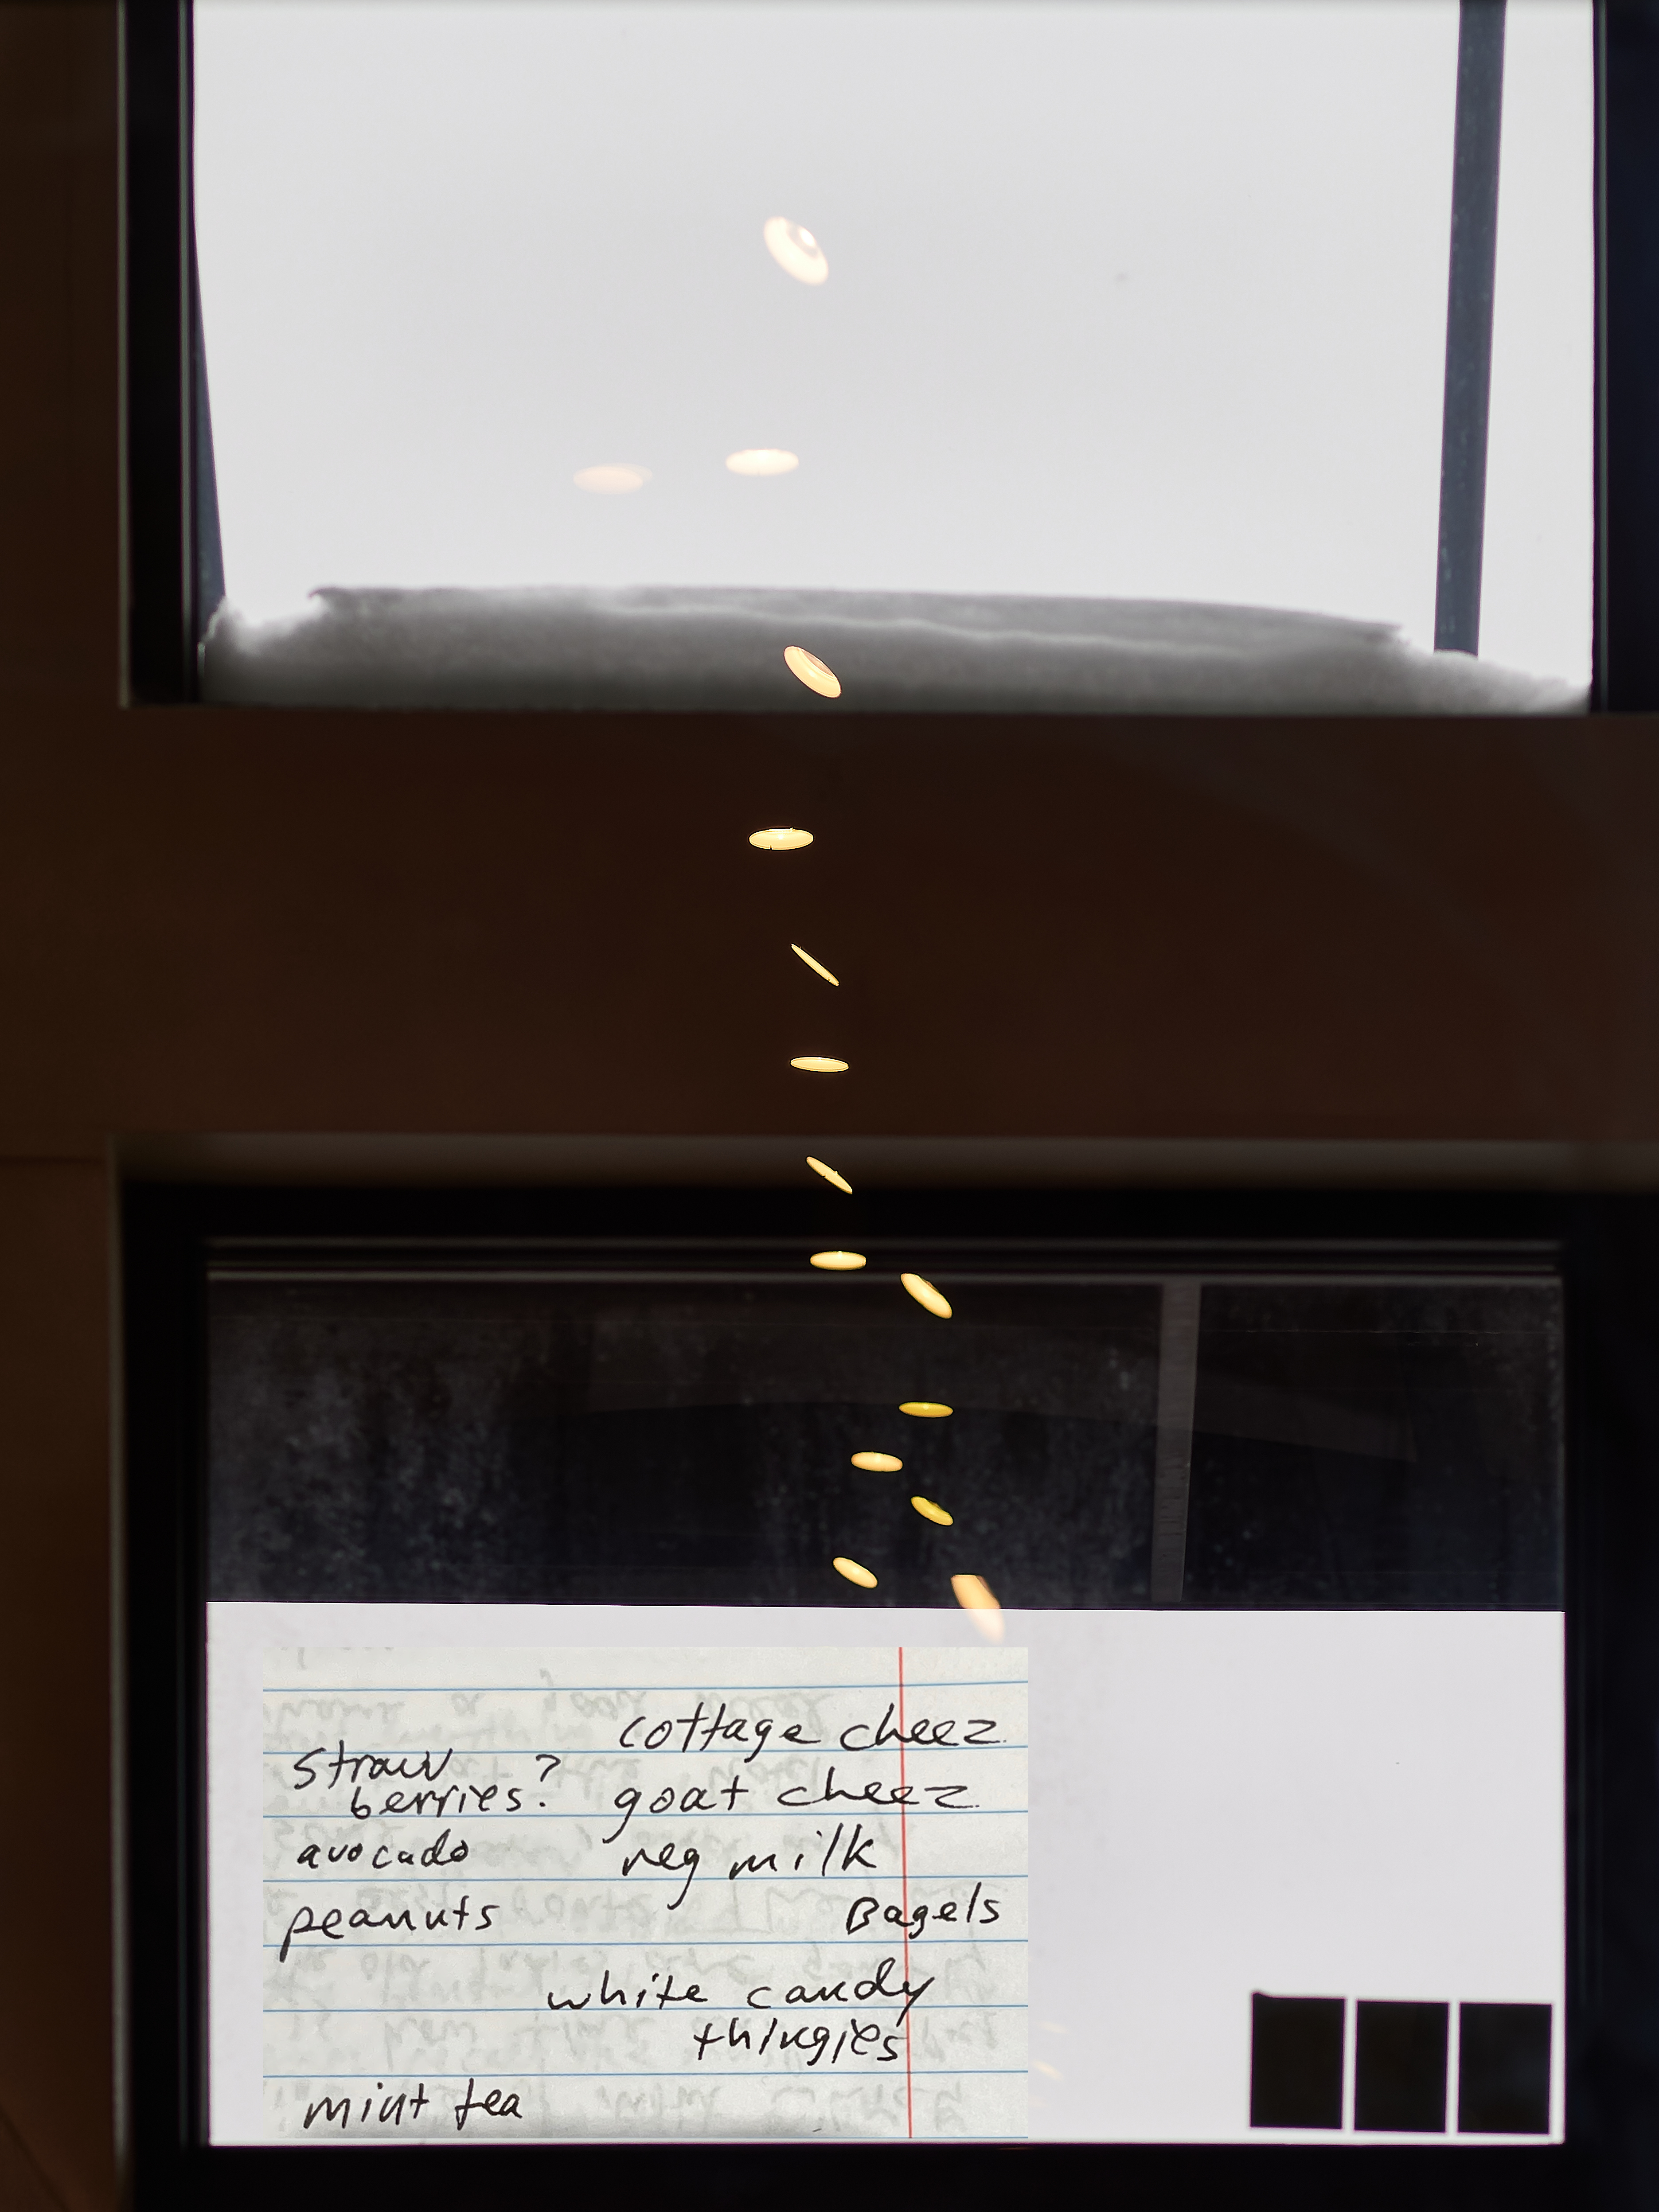 cottage cheez
straw ?
berries.
goat cheez
avocado
reg milk
peanuts
Bagels
white candy
thingies
mint tea